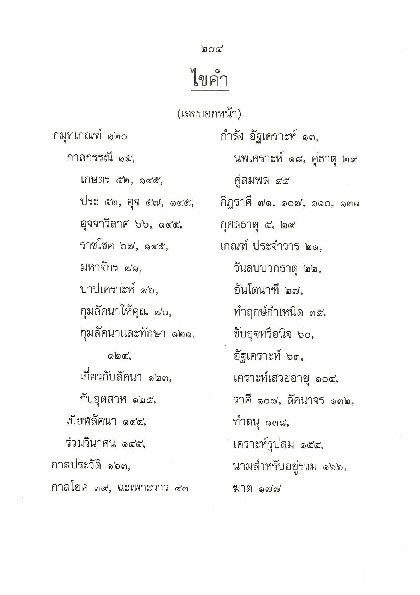 ๒๐๔
ไขคำ
(เลขบอกหน้า)
กมุทเกณฑ์ ๑๒๐
กาลกรรณี ๑๕,
เกษตร ๕๒, ๑๔๕,
ประ ๕๒, อุจ ๕๗, ๑๔๕,
อุจจาวิลาศ ๖๖, ๑๔๕,
ราชโชค ๖๗, ๑๔๕,
มหาจักร ๗๑,
บาปเคราะห์ ๗๖,
กุมลัคนาให้คุณ ๘๐,
กุมลัคนาและทักษา ๑๒๑,
๑๒๔,
เกี่ยวกับลัคนา ๑๒๓,
กับอุตสาห ๑๒๕,
เบียฬลัคนา ๑๔๔,
ร่วมวินาศน์ ๑๔๕,
กาลประวัติ ๑๖๓,
กาลโยค ๓๙, ฉะเพาะการ ๔๓
กำรัง อัฐเคราะห์ ๑๓,
นพเคราะห์ ๑๘, คู่ธาตุ ๒๙
คู่สมพล ๙๕
กัฏราศี ๗๑, ๑๐๗, ๑๑๐, ๑๓๓
กุศลธาตุ ๕, ๒๙
เกณฑ์ ประจำวาร ๒๑,
วันลบบวกธาตุ ๒๒,
อันโตนาที ๒๗,
ทำฤกษ์กำเหนิด ๓๕,
จับอุจหรือนิจ ๖๐,
อัฐเคราะห์ ๖๙,
เคราะห์เสวยอายุ ๑๐๔,
ราศี ๑๐๗, ลัคนาจร ๑๓๒,
ทำตนุ ๑๓๘,
เคราะห์รูปสม ๑๕๔,
นามสำหรับอยู่รวม ๑๖๖,
ฆาต ๑๗๗